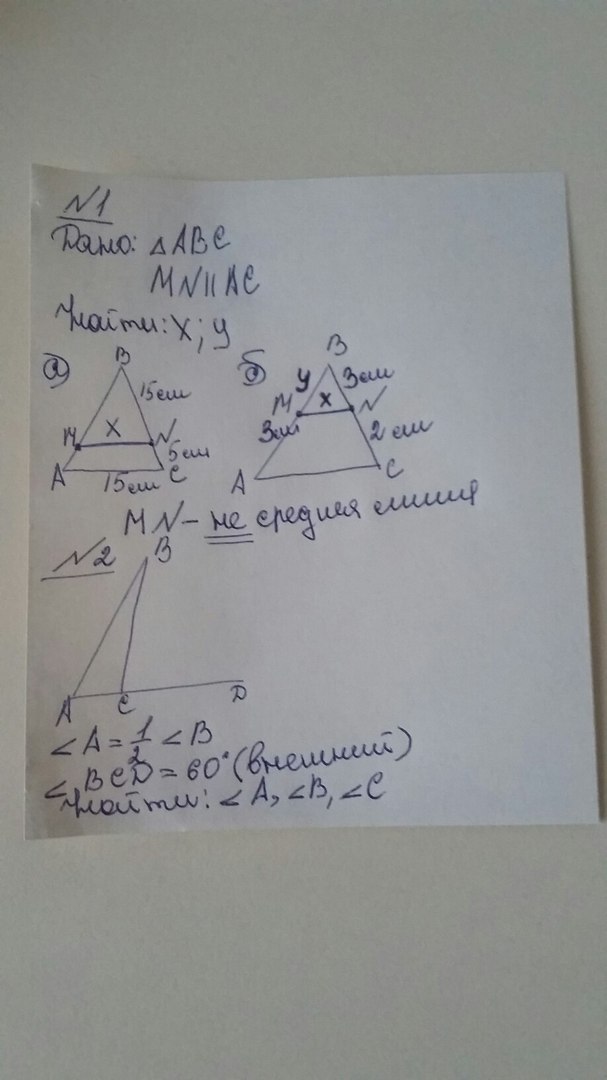 N1
Дано: △ABC
MN॥AC
Найти: x; y
а) б)
B
15см
M x N
5см
A 15см C
B
y 3см
M x N
3см 2см
A C
MN – не средняя линия
N2
B
A C D
∠A = 1/2 ∠B
∠BCD = 60° (внешний)
Найти: ∠A, ∠B, ∠C